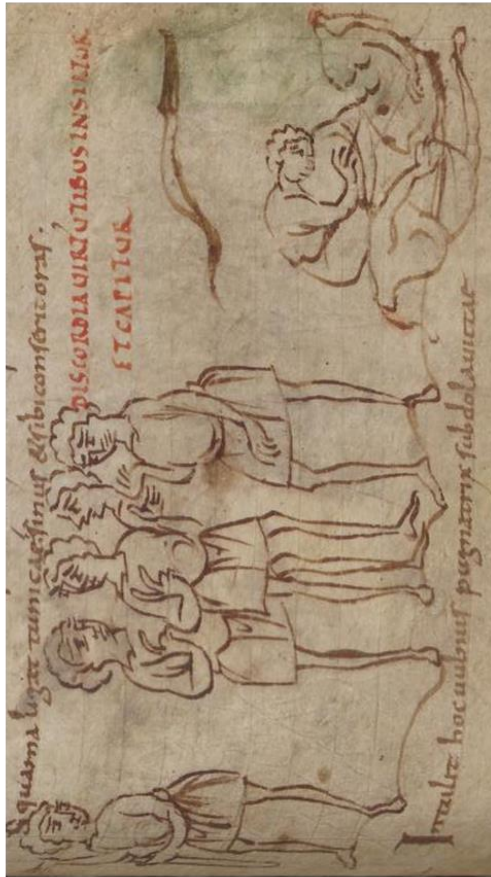 Squama ligat tunicae sinus & sibi conserit oras.
DISCORDIA UIRTUTIBUS
ET CAPITUR
Intulit hoc uulnus pugnatrix subdola uictae